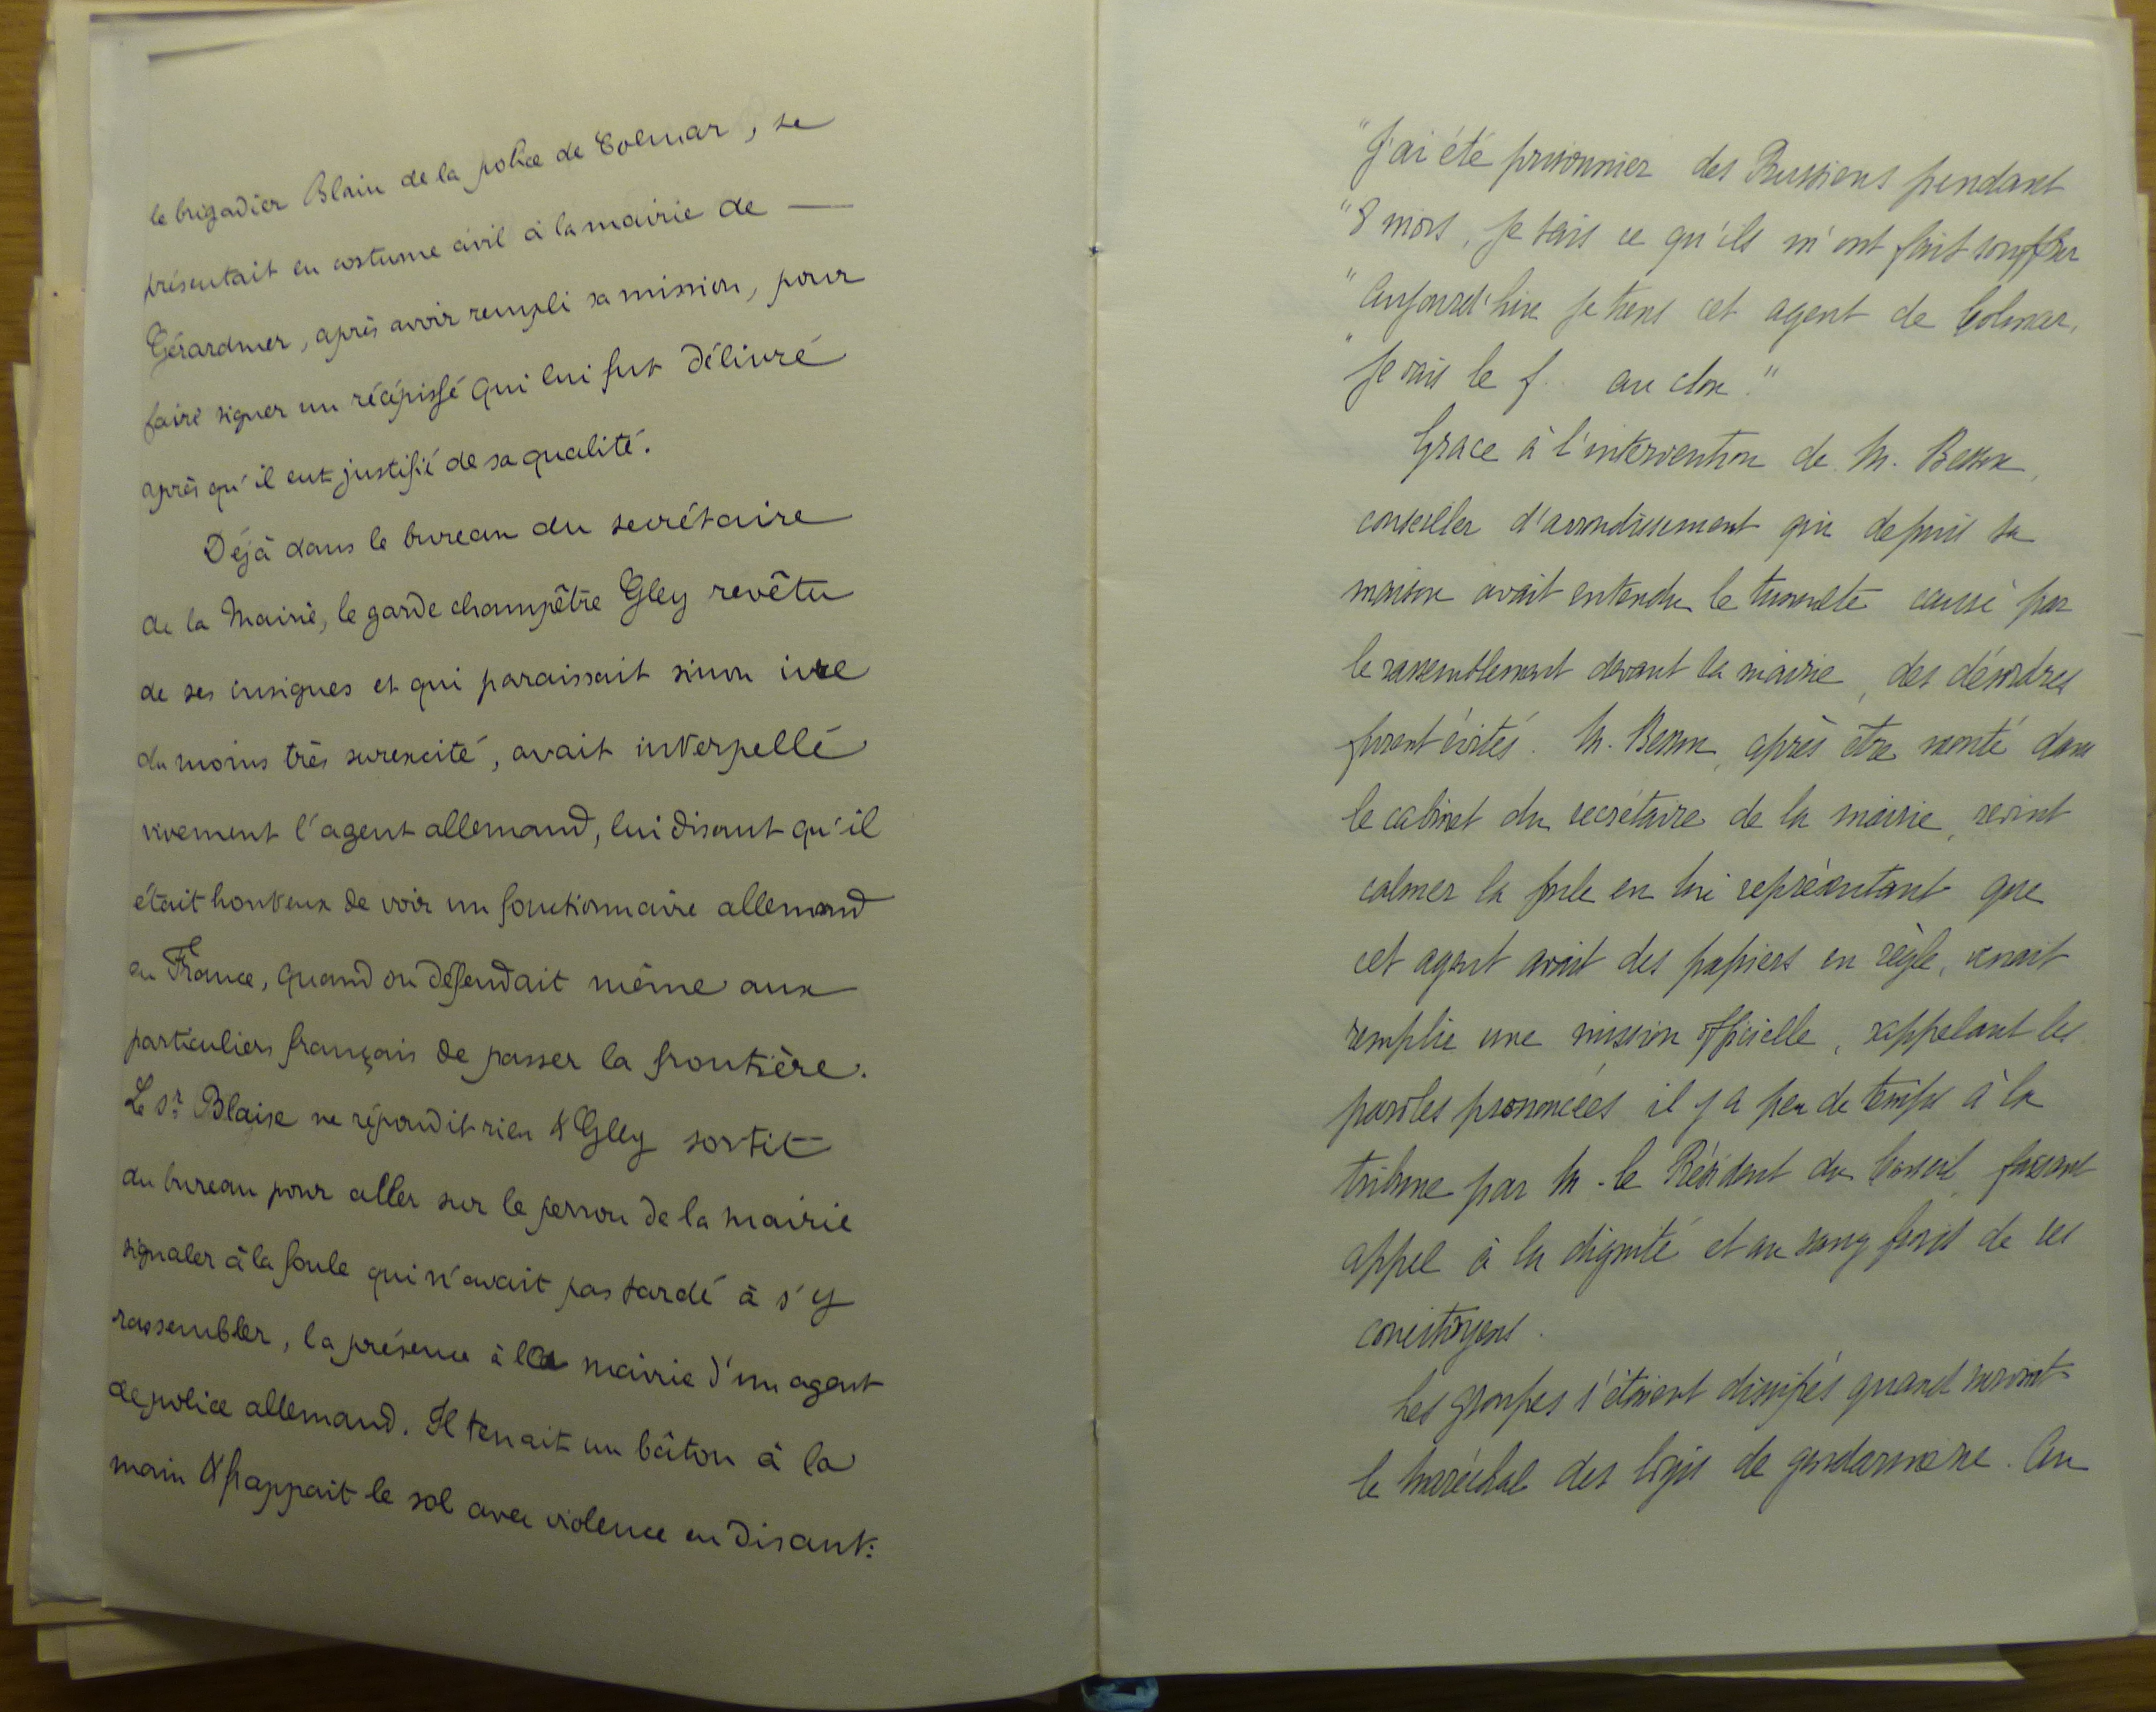 le brigadier Blain de la police de Colmar, se
présentait en costume civil à la mairie de —
Gérardmer, après avoir rempli sa mission, pour
faire signer un récépissé qui lui fut délivré
après qu'il eut justifié de sa qualité.
Déjà dans le bureau du secrétaire
de la Mairie, le garde champêtre Gley revêtu
de ses insignes et qui paraissait sinon ivre
du moins très surexcité, avait interpellé
vivement l'agent allemand, lui disant qu'il
était honteux de voir un fonctionnaire allemand
en France, quand on défendait même aux
particuliers français de passer la frontière.
Le Sr. Blaise ne répondit rien & Gley sortit
du bureau pour aller sur le perron de la mairie
signaler à la foule qui n'avait pas tardé à s'y
rassembler, la présence à la mairie d'un agent
de police allemand. Il tenait un bâton à la
main & frappait le sol avec violence en disant:
"J'ai été prisonnier des Prussiens pendant
"8 mois, je sais ce qu'ils m'ont fait souffrir
"Aujourd'hui je tiens cet agent de Colmar,
"Je vais le f.. au clou."
Grace à l'intervention de M. Besson,
conseiller d'arrondissement qui depuis sa
maison avait entendu le tumulte causé par
le rassemblement devant la mairie, des désordres
furent évités. M. Besson, après être monté dans
le cabinet du secrétaire de la mairie, revint
calmer la foule en lui représentant que
cet agent avait des papiers en règle, venait
remplir une mission officielle, rappelant les
paroles prononcées il y a peu de temps à la
tribune par M. le Président du Conseil, faisant
appel à la dignité et au sang froid de ses
concitoyens.
Les groupes s'étaient dissipés quand survint
le Maréchal des logis de gendarmerie. Au